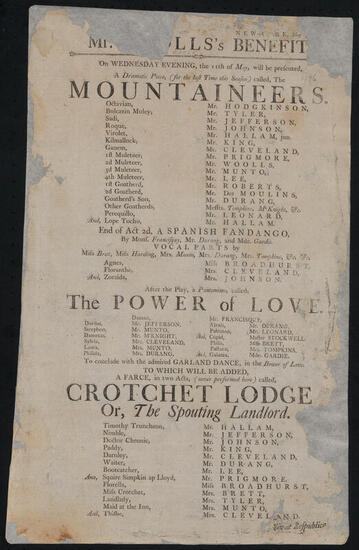 NEW-
Mr. OLLS's BENEFIT
On WEDNESDAY EVENING, the 11th of May, will be presented,
A Dramatic Piece, (for the last Time this Season) called, The
MOUNTAINEERS.
Octavian, Mr. HODGKINSON,
Bulcazin Muley, Mr. TYLER,
Sadi, Mr. JEFFERSON,
Roque, Mr. JOHNSON,
Virolet, Mr. HALLAM, jun.
Kilmallock, Mr. KING,
Ganem, Mr. CLEVELAND,
1st Muleteer, Mr. PRIGMORE,
2d Muleteer, Mr. WOOLLS,
3d Muleteer, Mr. MUNTO,
4th Muleteer, Mr. LEE,
1st Goatherd, Mr. ROBERTS,
2d Goatherd, Mr. Des MOULINS,
Goatherd's Son, Mr. DURANG,
Other Goatherds, Messrs. Tompkins, M'Knight, &c.
Perequillo, Mr. LEONARD,
And, Lope Tocho, Mr. HALLAM.
End of Act 2d, A SPANISH FANDANGO,
By Mons. Francisquy, Mr. Durang, and Mde. Gardie.
VOCAL PARTS by
Miss Brett, Miss Harding, Mrs. Munto, Mrs. Durang, Mrs. Tompkins, &c. &c.
Agnes, Miss BROADHURST,
Floranthe, Mrs. CLEVELAND,
And, Zorayda, Mrs. JOHNSON.
After the Play, a Pantomime, called,
The POWER of LOVE.
Mr. FRANCISQUY,
Dorilas, Mr. JEFFERSON, Alexis, Mr. DURANG,
Mr. MUNTO, Mr. LEONARD,
Damotas, Mr. M'KNIGHT, And, Cupid, Master STOCKWELL
Sylvia, Mrs. CLEVELAND, Phillis, Miss BRETT,
Laura, Mrs. MUNTO, Mrs. TOMPKINS,
Philida, Mrs. DURANG, And, Galatea, Mde. GARDIE.
To conclude with the admired GARLAND DANCE, in the Bower of Love.
TO WHICH WILL BE ADDED,
A FARCE, in two Acts, (never performed here) called,
CROTCHET LODGE
Or, The Spouting Landlord.
Timothy Truncheon, Mr. HALLAM,
Nimble, Mr. JEFFERSON,
Doctor Chronic, Mr. JOHNSON,
Paddy, Mr. KING,
Darnley, Mr. CLEVELAND,
Waiter, Mr. DURANG,
Bootcatcher, Mr. LEE,
And, Squire Simpkin ap Lloyd, Mr. PRIGMORE.
Florella, Miss BROADHURST,
Miss Crotchet, Mrs. BRETT,
Landlady, Mrs. TYLER,
Maid at the Inn, Mrs. MUNTO,
And, Thisbe, Mrs. CLEVELAND.
Vivat Respublica